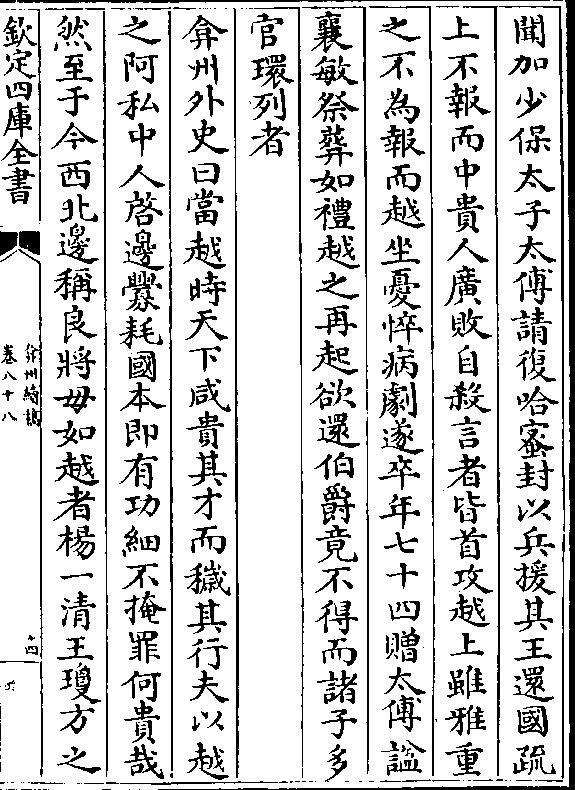 聞加少保太子太傅請復哈宻封以兵援其王還國疏
上不報而中貴人廣敗自殺言者皆首攻越上雖雅重
之不為報而越坐憂悴病劇遂卒年七十四贈太傅諡
襄敏祭葬如禮越之再起欲還伯爵竟不得而諸子多
官環列者
弇州外史曰當越時天下咸貴其才而穢其行夫以越
之阿私中人啓邊釁耗國本即有功細不掩罪何貴哉
然至于今西北邊稱良將毋如越者楊一清王瓊方之
欽定四庫全書
弇州續稿
卷八十八
十四